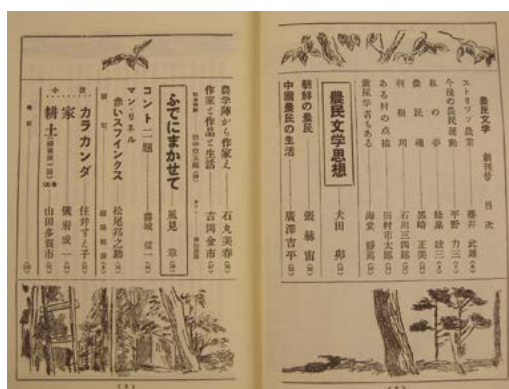 農民文學 創刊号 目次
ストリップ農業 櫻井武雄
今後の農民運動 平野力三
私の夢
農民魂 黒崎正美
利根川 石川三四郎
ある村の点描 田村市太郎
糞尿学者もある
農民文學思想 犬田卯
朝鮮の農民 張赫宙
中國農民の生活 廣澤吉平
農学陣から作家え 石丸美春
作家と作品と生活 吉岡金市
ふでにまかせて 風見章
コント二題
マン・リネル
赤いスフインクス 松尾邦之助
小説
カラカンダ 住井すえ子
家 儀府成一
耕土 山田多賀市